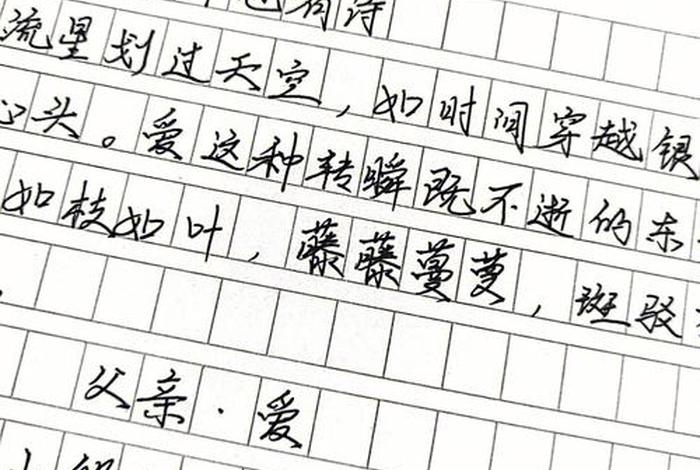 也有诗
流星划过天空，如时间穿越银
心头。爱这种转瞬既不逝的东
如枝如叶，藤藤蔓蔓，斑驳
父亲·爱